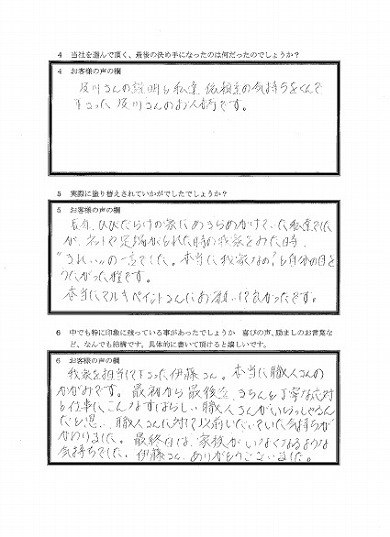 4 当社を選んで頂く、最後の決め手になったのは何だったのでしょうか?
4 お客様の声の欄
及川さんの説明も私達、依頼主の気持ちをくんで
下さった及川さんのお人柄です。
5 実際に塗り替えされていかがでしたでしょうか?
5 お客様の声の欄
長年、ひびだらけの家にあきらめかけていた私達でした
が、ネットや足場がとられた時の我家をみた時、
"きれい"の一言でした。本当に我家なの?と自分の目を
うたがった程です。
本当にマルキペイントさんにお願いして良かったです。
6 中でも特に印象に残っている事があったでしょうか 喜びの声、励ましのお言葉な
ど、なんでも結構です。具体的に書いて頂けると嬉しいです。
6 お客様の声の欄
我家を担当して下さった伊藤さん。本当に職人さんの
かがみです。最初から最後まで、きちんと丁寧な応対
と仕事に、こんなすばらしい職人さんがいらっしゃるん
だと思い、職人さんに対して以前いだいていた気持ちが
かわりました。最終日は、家族がいなくなるような
気持ちでした。伊藤さん、ありがとうございました。